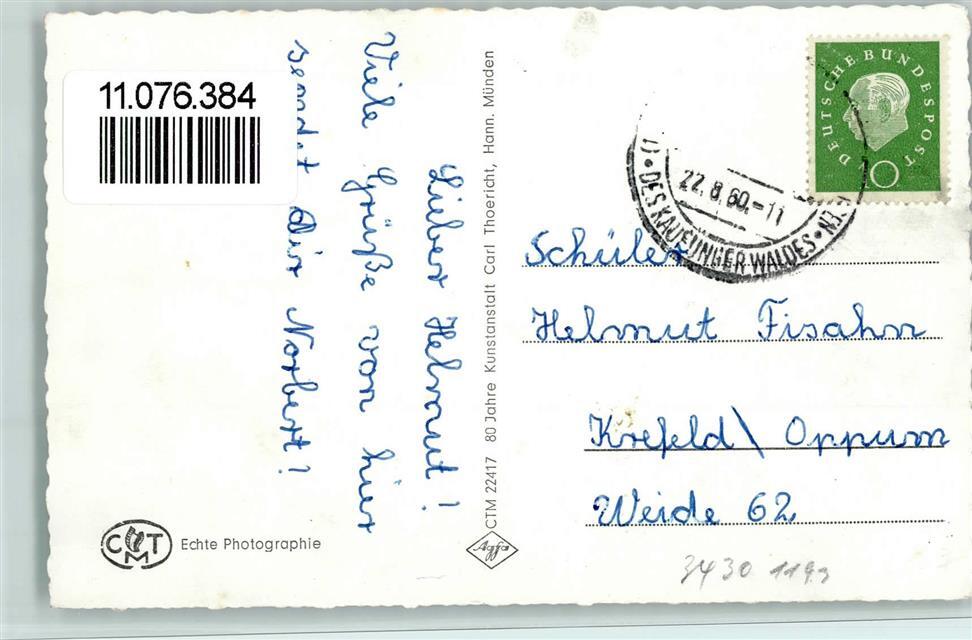 11.076.384
Lieber Helmut!
Viele Grüße von hier
sendet Dir Norbert!
CTM 22417 80 Jahre Kunstanstalt Carl Thoericht, Hann. Münden
DEUTSCHE BUNDESPOST
10
22.8.60.-11
DES KAUFUNGER WALDES
Schüler
Helmut Fisahn
Krefeld\ Oppum
Weide 62
CTM
Echte Photographie
Agfa
3430